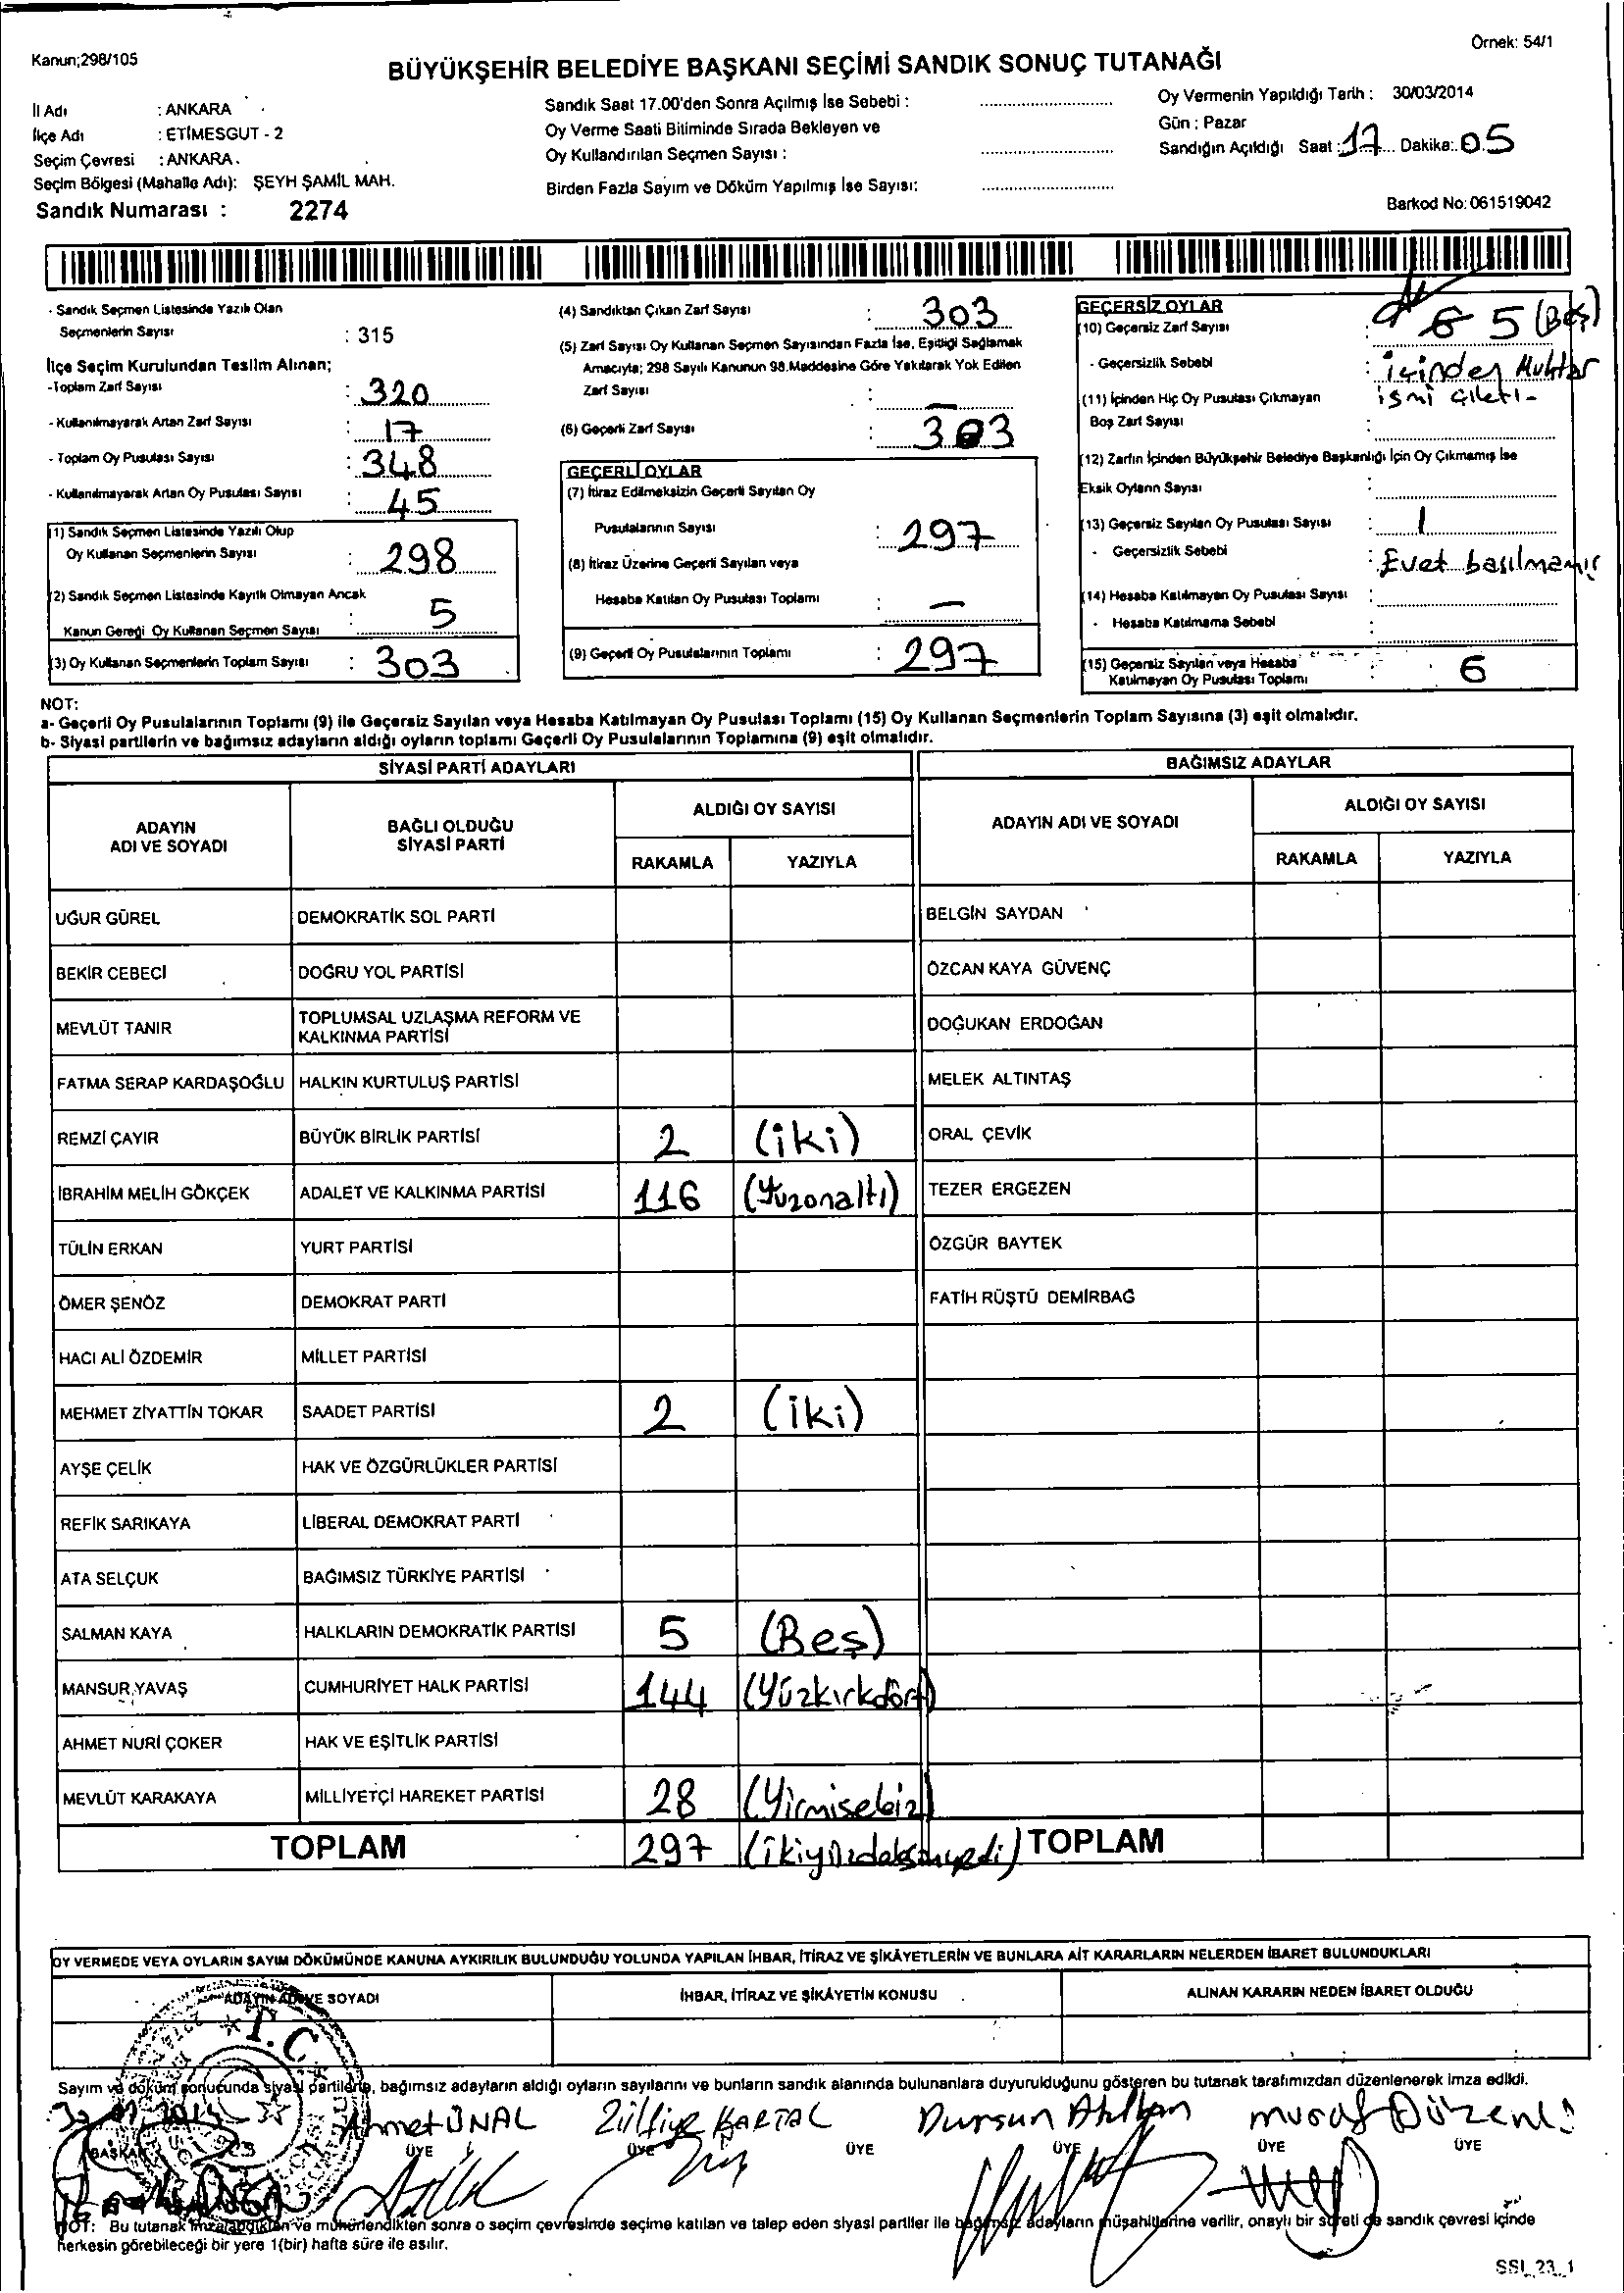 Kanun;298/105
Örnek: 54/1
BÜYÜKŞEHİR BELEDİYE BAŞKANI SEÇİMİ SANDIK SONUÇ TUTANAĞI
İl Adı : ANKARA
İlçe Adı : ETİMESGUT - 2
Seçim Çevresi : ANKARA.
Seçim Bölgesi (Mahalle Adı): ŞEYH ŞAMİL MAH.
Sandık Numarası : 2274
Sandık Saat 17.00'den Sonra Açılmış İse Sebebi :
Oy Verme Saati Bitiminde Sırada Bekleyen ve
Oy Kullandırılan Seçmen Sayısı :
Birden Fazla Sayım ve Döküm Yapılmış İse Sayısı:
Oy Vermenin Yapıldığı Tarih : 30/03/2014
Gün : Pazar
Sandığın Açıldığı Saat : 17 Dakika: 05
Barkod No: 061519042
- Sandık Seçmen Listesinde Yazılı Olan
Seçmenlerin Sayısı : 315
İlçe Seçim Kurulundan Teslim Alınan;
-Toplam Zarf Sayısı : 320
- Kullanılmayarak Artan Zarf Sayısı : 17
- Toplam Oy Pusulası Sayısı : 348
- Kullanılmayarak Artan Oy Pusulası Sayısı : 45
(1) Sandık Seçmen Listesinde Yazılı Olup
Oy Kullanan Seçmenlerin Sayısı : 298
(2) Sandık Seçmen Listesinde Kayıtlı Olmayan Ancak
Kanun Gereği Oy Kullanan Seçmen Sayısı 5
(3) Oy Kullanan Seçmenlerin Toplam Sayısı : 303
(4) Sandıktan Çıkan Zarf Sayısı : 303
(5) Zarf Sayısı Oy Kullanan Seçmen Sayısından Fazla İse, Eşitliği Sağlamak
Amacıyla; 298 Sayılı Kanunun 98.Maddesine Göre Yakılarak Yok Edilen
Zarf Sayısı : —
(6) Geçerli Zarf Sayısı : 303
GEÇERLİ OYLAR
(7) İtiraz Edilmeksizin Geçerli Sayılan Oy
Pusulalarının Sayısı : 297
(8) İtiraz Üzerine Geçerli Sayılan veya
Hesaba Katılan Oy Pusulası Toplamı : —
(9) Geçerli Oy Pusulalarının Toplamı : 297
GEÇERSİZ OYLAR
(10) Geçersiz Zarf Sayısı : 6 5 (Beş)
- Geçersizlik Sebebi : içinden Muhtar
ismi çıktı-
(11) İçinden Hiç Oy Pusulası Çıkmayan
Boş Zarf Sayısı :
(12) Zarfın İçinden Büyükşehir Belediye Başkanlığı İçin Oy Çıkmamış İse
Eksik Oyların Sayısı :
(13) Geçersiz Sayılan Oy Pusulası Sayısı : 1
- Geçersizlik Sebebi : Evet basılmamış
(14) Hesaba Katılmayan Oy Pusulası Sayısı :
- Hesaba Katılmama Sebebi :
(15) Geçersiz Sayılan veya Hesaba
Katılmayan Oy Pusulası Toplamı : 6
NOT:
a- Geçerli Oy Pusulalarının Toplamı (9) ile Geçersiz Sayılan veya Hesaba Katılmayan Oy Pusulası Toplamı (15) Oy Kullanan Seçmenlerin Toplam Sayısına (3) eşit olmalıdır.
b- Siyasi partilerin ve bağımsız adayların aldığı oyların toplamı Geçerli Oy Pusulalarının Toplamına (9) eşit olmalıdır.
SİYASİ PARTİ ADAYLARI
BAĞIMSIZ ADAYLAR
ADAYIN ADI VE SOYADI
BAĞLI OLDUĞU SİYASİ PARTİ
ALDIĞI OY SAYISI
RAKAMLA YAZIYLA
ADAYIN ADI VE SOYADI
ALDIĞI OY SAYISI
RAKAMLA YAZIYLA
UĞUR GÜREL DEMOKRATİK SOL PARTİ BELGİN SAYDAN
BEKİR CEBECİ DOĞRU YOL PARTİSİ ÖZCAN KAYA GÜVENÇ
MEVLÜT TANIR TOPLUMSAL UZLAŞMA REFORM VE KALKINMA PARTİSİ DOĞUKAN ERDOĞAN
FATMA SERAP KARDAŞOĞLU HALKIN KURTULUŞ PARTİSİ MELEK ALTINTAŞ
REMZİ ÇAYIR BÜYÜK BİRLİK PARTİSİ 2 (iki) ORAL ÇEVİK
İBRAHİM MELİH GÖKÇEK ADALET VE KALKINMA PARTİSİ 116 (Yüzonaltı) TEZER ERGEZEN
TÜLİN ERKAN YURT PARTİSİ ÖZGÜR BAYTEK
ÖMER ŞENÖZ DEMOKRAT PARTİ FATİH RÜŞTÜ DEMİRBAĞ
HACI ALİ ÖZDEMİR MİLLET PARTİSİ
MEHMET ZİYATTİN TOKAR SAADET PARTİSİ 2 (iki)
AYŞE ÇELİK HAK VE ÖZGÜRLÜKLER PARTİSİ
REFİK SARIKAYA LİBERAL DEMOKRAT PARTİ
ATA SELÇUK BAĞIMSIZ TÜRKİYE PARTİSİ
SALMAN KAYA HALKLARIN DEMOKRATİK PARTİSİ 5 (Beş)
MANSUR YAVAŞ CUMHURİYET HALK PARTİSİ 144 (Yüzkırkdört)
AHMET NURİ ÇOKER HAK VE EŞİTLİK PARTİSİ
MEVLÜT KARAKAYA MİLLİYETÇİ HAREKET PARTİSİ 28 (Yirmisekiz)
TOPLAM 297 (ikiyüzdoksanyedi) TOPLAM
OY VERMEDE VEYA OYLARIN SAYIM DÖKÜMÜNDE KANUNA AYKIRILIK BULUNDUĞU YOLUNDA YAPILAN İHBAR, İTİRAZ VE ŞİKÂYETLERİN VE BUNLARA AİT KARARLARIN NELERDEN İBARET BULUNDUKLARI
ADAYIN ADI VE SOYADI İHBAR, İTİRAZ VE ŞİKÂYETİN KONUSU ALINAN KARARIN NEDEN İBARET OLDUĞU
T.C
Sayım ve döküm sonucunda siyasi partilerin, bağımsız adayların aldığı oyların sayılarını ve bunların sandık alanında bulunanlara duyurulduğunu gösteren bu tutanak tarafımızdan düzenlenerek imza edildi.
Ahmet ÜNAL Zülfiye KARTAL Dursun Murat Düzenli
BAŞKAN ÜYE ÜYE ÜYE ÜYE ÜYE ÜYE
NOT: Bu tutanak imzalandıktan ve mühürlendikten sonra o seçim çevresinde seçime katılan ve talep eden siyasi partiler ile bağımsız adayların müşahitlerine verilir, onaylı bir sureti de sandık çevresi içinde
herkesin görebileceği bir yere 1(bir) hafta süre ile asılır.
SSI_23_1